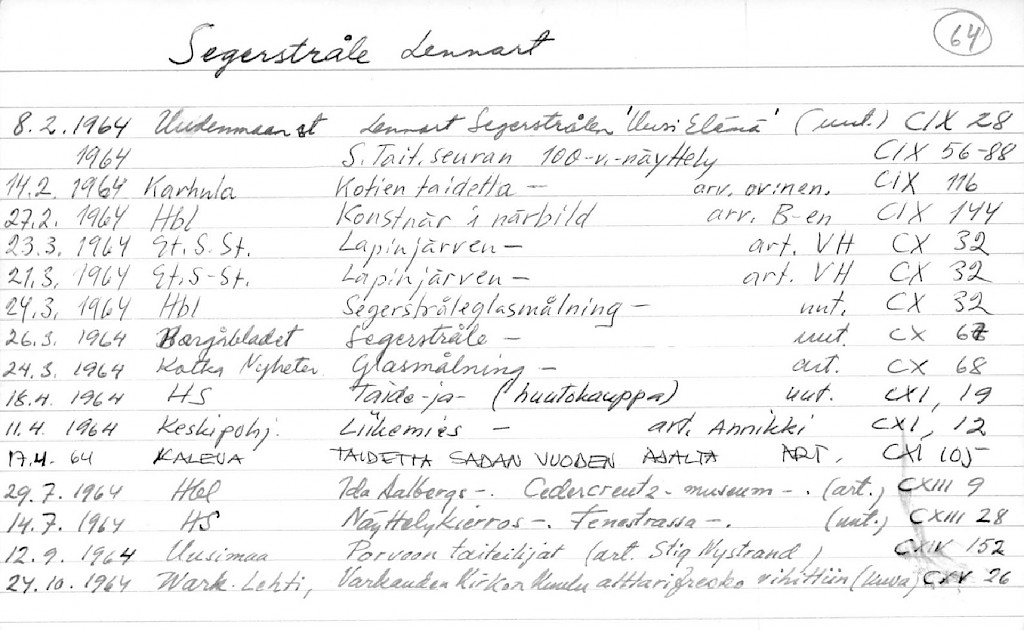 64
Segerstråle Lennart
8.2.1964 Uudenmaan st Lennart Segerstrålen 'Uusi Elämä' (uut.) CIX 28
1964 S.Tait.seuran 100-v.-näyttely CIX 56-88
14.2. 1964 Karhula Kotien taidetta — arv. ovinen. CIX 116
27.2. 1964 Hbl Konstnär i närbild arv. B-en CIX 144
23.3. 1964 Et.S.St. Lapinjärven — art. VH CX 32
21.3. 1964 Et.S-St. Lapinjärven — art. VH CX 32
24.3. 1964 Hbl Segerstråleglasmålning — uut. CX 32
26.3. 1964 Borgåbladet Segerstråle — uut. CX
24.3. 1964 Kotka Nyheter. Glasmålning — art. CX 68
18.4. 1964 HS Taide-ja- (huutokauppa) uut. CXI, 19
11.4. 1964 Keskipohj. Liikemies — art. Annikki CXI, 12
17.4. 64 KALEVA TAIDETTA SADAN VUODEN AJALTA ART. CXI 105
29.7. 1964 Hbl Ida Aalbergs-. Cedercreutz-museum-. (art.) CXIII 9
14.7. 1964 HS Näyttelykierros-. Fenestrassa-. (uut.) CXIII 28
12.9. 1964 Uusimaa Porvoon taiteilijat (art. Stig Nystrand) CXIV 152
24.10. 1964 Wark.Lehti, Varkauden Kirkon kuulu alttarifresko vihittiin (kuva) CXV 26